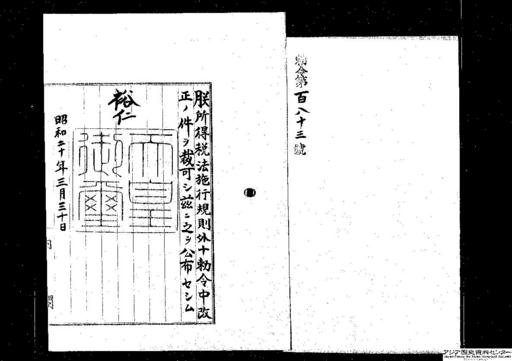 勅令第百八十三號
朕所得税法施行規則外十勅令中改
正ノ件ヲ裁可シ茲ニ之ヲ公布セシム
裕仁
天皇御璽
昭和二十年三月三十日
内閣
アジア歴史資料センター